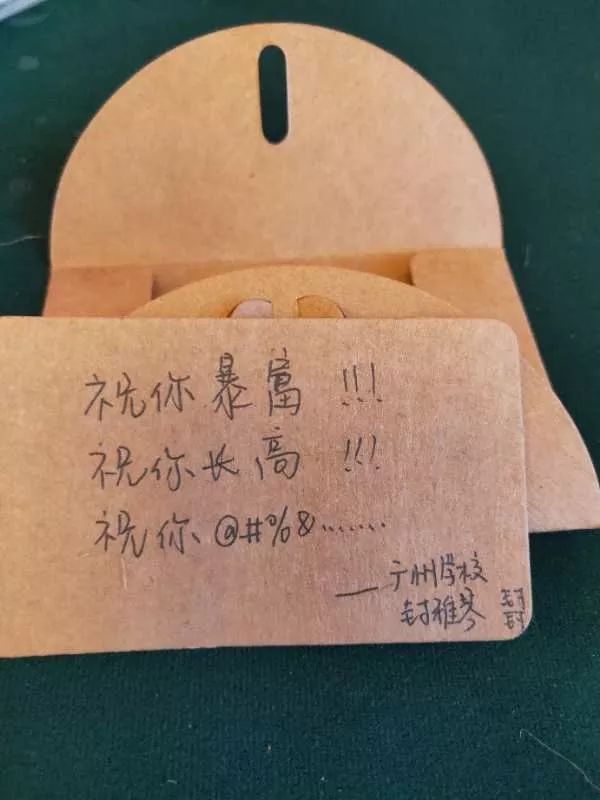 祝你暴富!!!
祝你长高!!!
祝你@#%&……
——广州学校
封雅琴